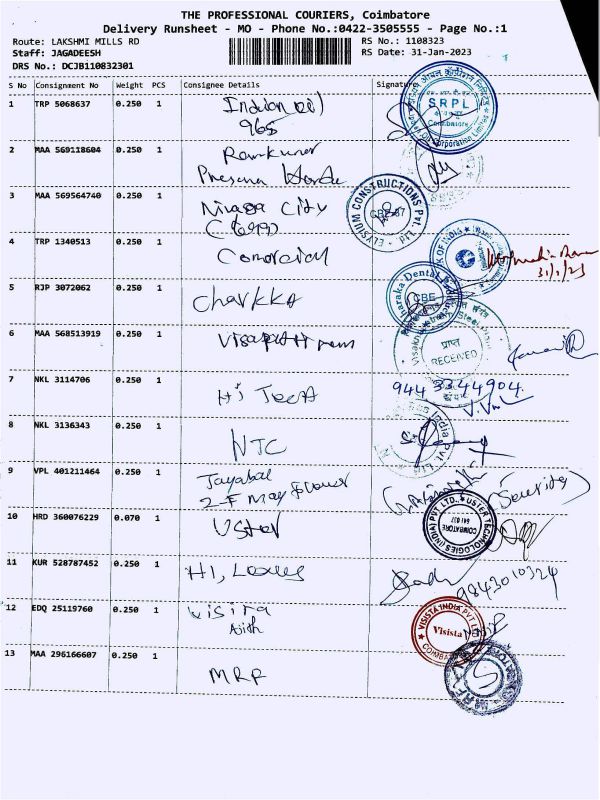 THE PROFESSIONAL COURIERS, Coimbatore
Delivery Runsheet - MO - Phone No.:0422-3505555 - Page No.:1
Route: LAKSHMI MILLS RD
RS No.: 1108323
Staff: JAGADEESH
RS Date: 31-Jan-2023
DRS No.: DCJB110832301
S No Consignment No Weight PCS Consignee Details Signature
1 TRP 5068637 0.250 1 Indian oil
965
SRPL
Coimbatore
2 MAA 569118604 0.250 1 Ramkumar
3 MAA 569564740 0.250 1 City
ELYSIUM CONSTRUCTIONS Pvt.
4 TRP 1340513 0.250 1
31/1/23
5 RJP 3072062 0.250 1 Charkka
CBE
6 MAA 568513919 0.250 1
प्राप्त
RECEIVED
7 NKL 3114706 0.250 1 Hi Tech
944 3344904
8 NKL 3136343 0.250 1 NTC
9 VPL 401211464 0.250 1 Jayabal
(Security)
10 HRD 360076229 0.070 1 Uster
USTER TECHNOLOGIES (INDIA) PVT LTD.
COIMBATORE
641 037
11 KUR 528787452 0.250 1
9843010324
12 EDQ 25119760 0.250 1 Visista
Ajith
VISISTA INDIA PVT
Visista
13 MAA 296166607 0.250 1 MRF